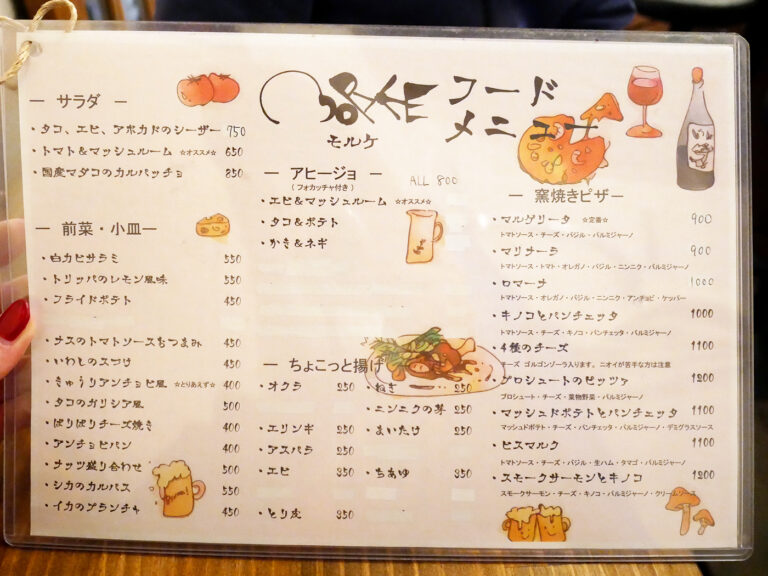 フード
メニュー
モルケ
― サラダ ―
・タコ、エビ、アボカドのシーザー 750
・トマト&マッシュルーム ☆オススメ☆ 650
・国産マダコのカルパッチョ 850
― 前菜・小皿 ―
・白カビサラミ 550
・トリッパのレモン風味 550
・フライドポテト 450
・ナスのトマトソースおつまみ 450
・いわしのスづけ 450
・きゅうりアンチョビ風 ☆とりあえず☆ 400
・タコのガリシア風 500
・ぱりぱりチーズ焼き 400
・アンチョビパン 400
・ナッツ盛り合わせ 500
・シカのカルパス 550
・イカのプランチャ 450
― アヒージョ ― ALL 800
(フォカッチャ付き)
・エビ&マッシュルーム ☆オススメ☆
・タコ&ポテト
・かき&ネギ
― ちょこっと揚げ
・オクラ 250 ・ねぎ 250
・ニンニクの芽 250
・エリンギ 250 ・まいたけ 250
・アスパラ 250
・エビ 350 ・ちあゆ 350
・とり皮 350
― 窯焼きピザ―
・マルゲリータ ☆定番☆ 900
トマトソース・チーズ・バジル・パルミジャーノ
・マリナーラ 900
トマトソース・トマト・オレガノ・バジル・ニンニク・パルミジャーノ
・ロマーナ 1000
トマトソース・オレガノ・バジル・ニンニク・アンチョビ・ケッパー
・キノコとパンチェッタ 1000
トマトソース・チーズ・キノコ・パンチェッタ・パルミジャーノ
・4種のチーズ 1100
チーズ ゴルゴンゾーラ入ります。ニオイが苦手な方は注意
・プロシュートのピッツァ 1200
プロシュート・チーズ・葉物野菜・パルミジャーノ
・マッシュドポテトとパンチェッタ 1100
マッシュドポテト・チーズ・パンチェッタ・パルミジャーノ・デミグラスソース
・ビスマルク 1100
トマトソース・チーズ・バジル・生ハム・タマゴ・パルミジャーノ
・スモークサーモンとキノコ 1200
スモークサーモン・チーズ・キノコ・パルミジャーノ・クリームソース